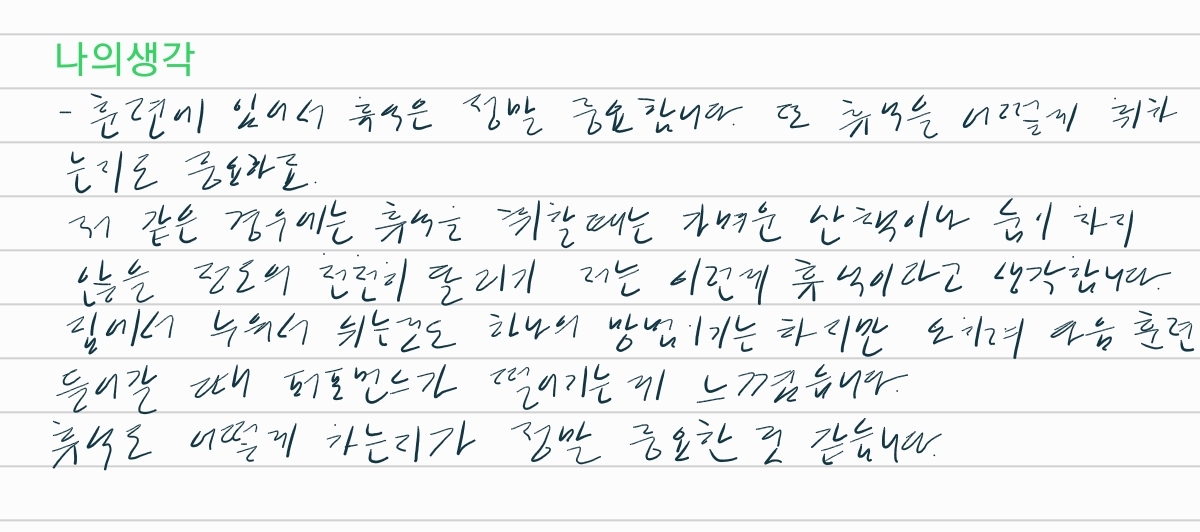 나의생각
- 훈련에 있어서 휴식은 정말 중요합니다. 또 휴식을 어떻게 취하
는지도 중요하죠.
저 같은 경우에는 휴식을 취할때는 가벼운 산책이나 숨이 차지
않을 정도의 천천히 달리기 저는 이런게 휴식이라고 생각합니다.
집에서 누워서 쉬는것도 하나의 방법이기는 하지만 오히려 다음 훈련
들어갈 때 퍼포먼스가 떨어지는게 느껴집니다.
휴식도 어떻게 하는지가 정말 중요한 것 같습니다.